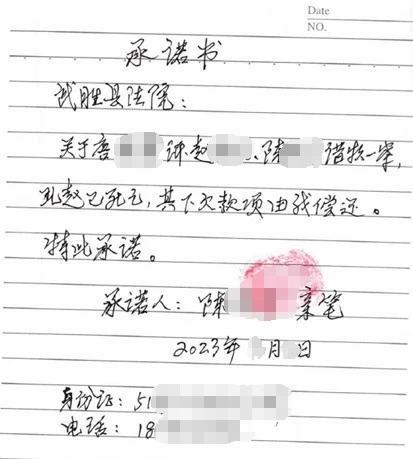 Date
NO.
承诺书
武胜县法院：
关于唐 诉赵 、陈 借款一案，
现赵已死亡，其下欠款项由我偿还。
特此承诺。
承诺人：陈 亲笔
2023年 月 日
身份证：51
电话：18